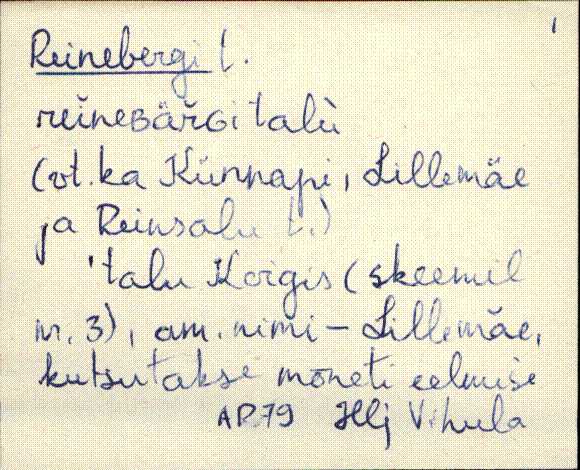 Reinebergi t.
reinesäroi talù
(vt. ka Künnapi, Lillemäe
ja Reinsalu t.)
'talu Koigis (skeemil
nr. 3), am. nimi – Lillemäe,
kutsutakse mõneti eelmise
AP.79 Hlj Vihula